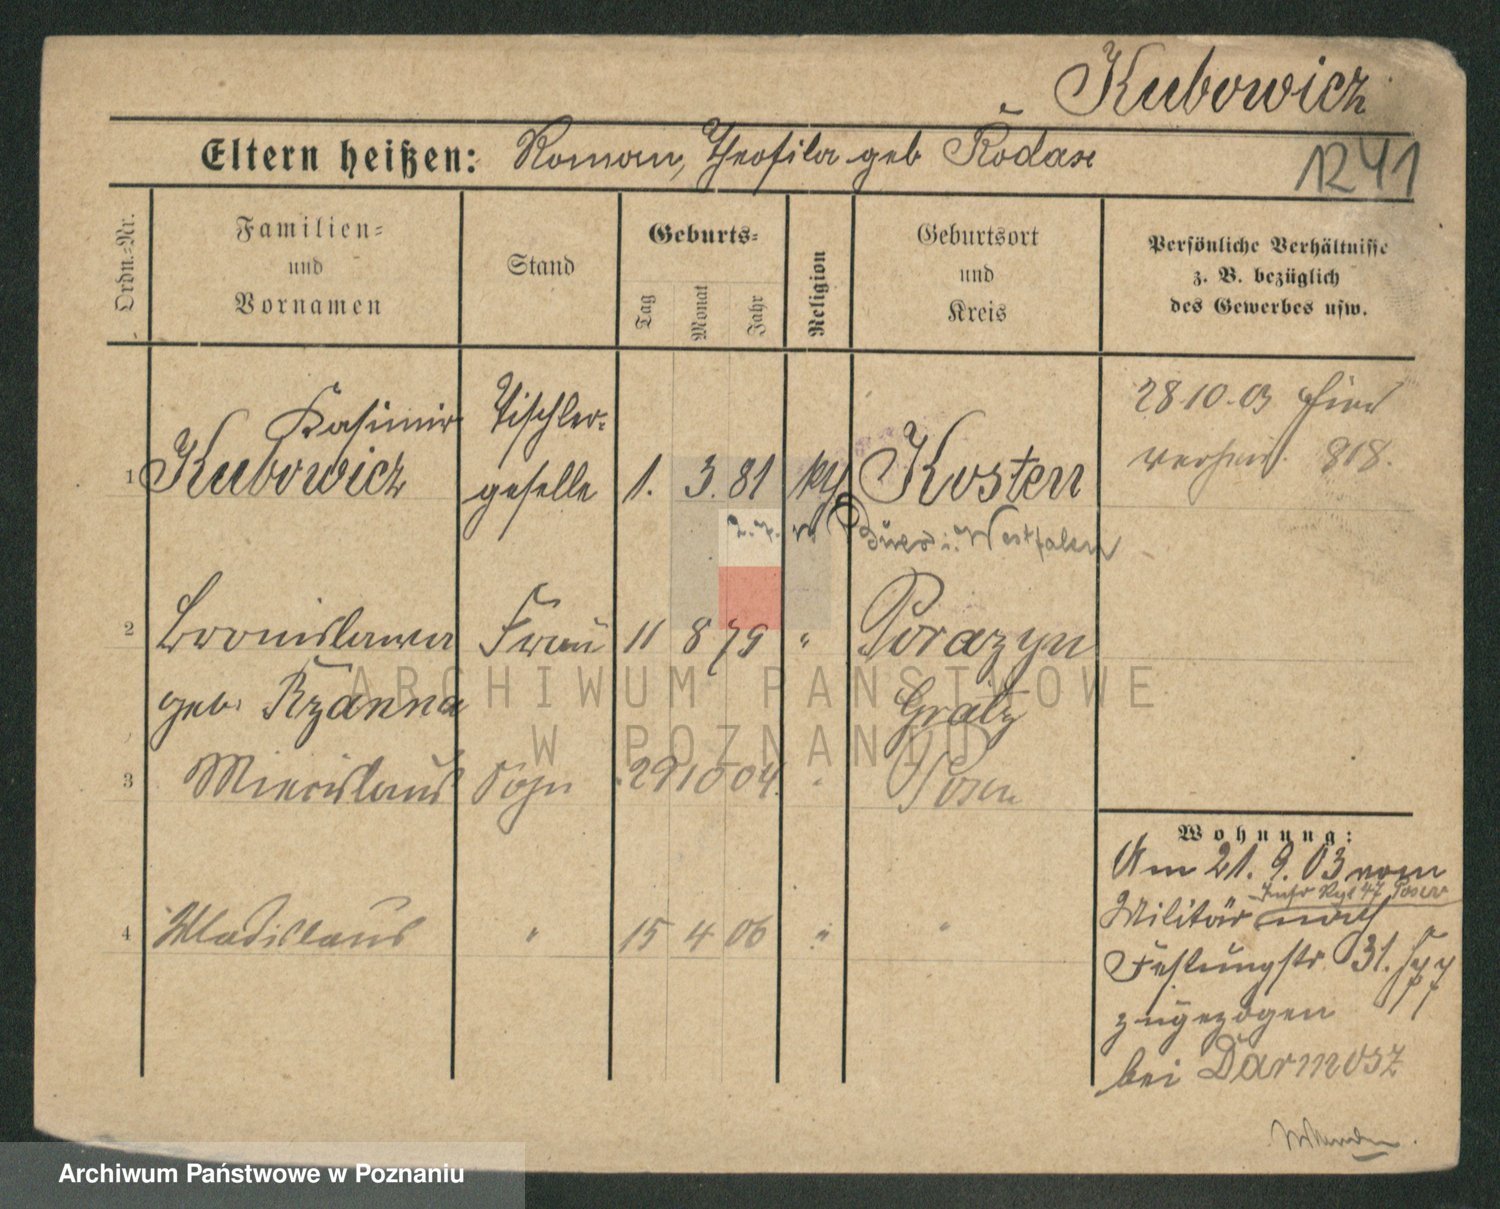 Kubowicz
Eltern heißen: Roman, Theofila geb Rodase
1241
Ordn.-Nr.
Familien- und Vornamen
Stand
Geburts-
Tag
Monat
Jahr
Religion
Geburtsort und Kreis
Persönliche Verhältnisse z. B. bezüglich des Gewerbes usw.
Kasimir Tischler- 28 10.03 hier
1 Kubowicz geselle 1. 3. 81 kth Kosten verheir. 808.
Büer i. Westfalen
2 Bronislawa Frau 11 8 79 " Porazyn
geb. Rzanna Grätz
3 Miecislaus Sohn 29 10 04. " Posen
Wohnung:
Am 21. 9. 03 vom
Infr Rgt 47 Posen
Militär nach
4 Wladislaus " 15 4 06 " "
Festungstr 31.
zugezogen
bei Darmosz
ARCHIWUM PAŃSTWOWE
W POZNANIU
Archiwum Państwowe w Poznaniu